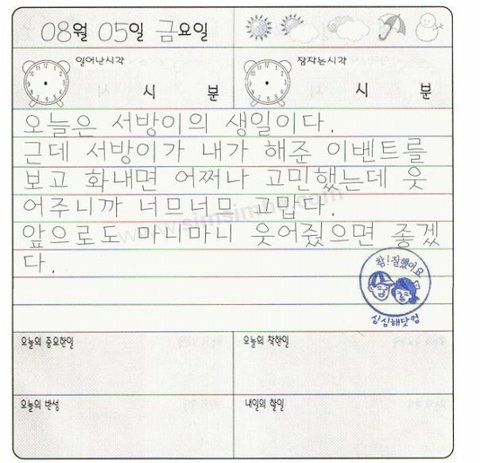 08월 05일 금요일
일어난시각
시 분
잠자는시각
시 분
오늘은 서방이의 생일이다.
근데 서방이가 내가 해준 이벤트를
보고 화내면 어쩌나 고민했는데 웃
어주니까 너므너므 맙다.
앞으로도 마니마니 웃어줬으면 좋겠
다.
참! 잘했어요
심심해닷컴
오늘의 중요한일
오늘의 착한일
오늘의 반성
내일의 할일